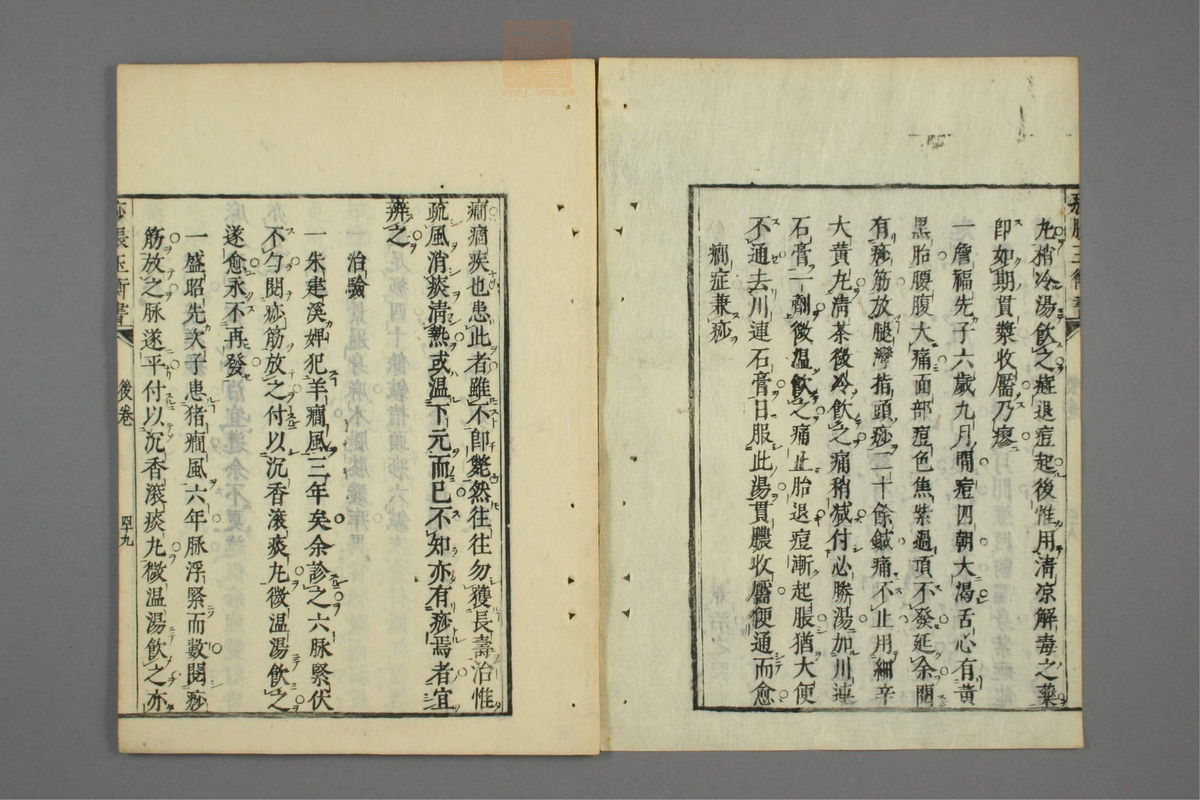 丸稍冷湯飲之痘退痘起後惟用清凉解毒之藥
即如期貫漿收靨乃瘳
一詹福先子六歲九月間痘四朝大渴舌心有黃
黑胎腰腹大痛面部痘色焦紫過項不發延余閱
有痧筋放腿灣指頭痧二十餘鍼痛不止用細辛
大黃丸清茶微冷飲之痛稍減付必勝湯加川連
石膏一劑微温飲之痛止胎退痘漸起脹猶大便
不通去川連石膏日服此湯貫膿收靨便通而愈
癇症兼痧
癇痼疾也患此者雖不即斃然往往勿獲長壽治惟
疏風消痰清熱或温下元而已不知亦有痧焉者宜
辨之
治驗
一朱建溪婢犯羊癇風三年矣余診之六脉緊伏
不勻閱痧筋放之付以沉香滚痰丸微温湯飲之
遂愈永不再發
一盛昭先次子患猪癇風六年脉浮緊而數閱痧
筋放之脉遂平付以沉香滚痰丸微温湯飲之亦
痧脹玉衡書
後卷
四十九